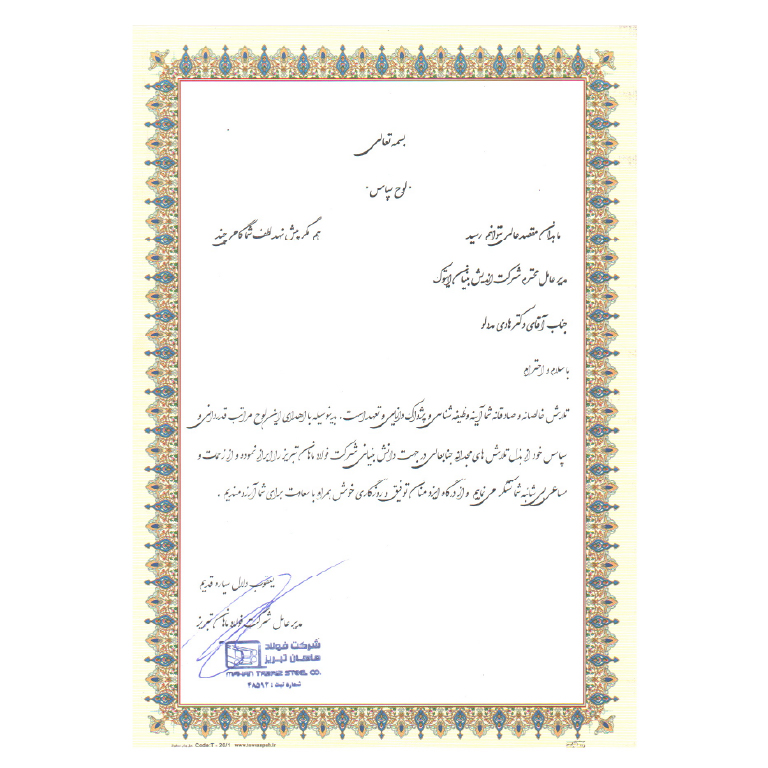 بسمه تعالی
لوح سپاس
ما بدان مقصد عالی نتوانیم رسید    هم مگر پیش نهد لطف شما گامی چند
مدیر عامل محترم شرکت اندیش بنیان
جناب آقای دکتر هادی
با سلام و احترام
تلاش خالصانه و صادقانه شما آینه وظیفه شناسی و پژواک دانایی و تعهد است، بدینوسیله با اهدای این لوح مراتب قدردانی و
سپاس خود از بذل تلاش های مجدانه جنابعالی در جهت دانش بنیانی شرکت فولاد ماهان تبریز را ابراز نموده و از زحمات و
مساعی بی شائبه شما تشکر می نمایم و از درگاه ایزد منان توفیق و روزگاری خوش همراه با سعادت برای شما آرزومندیم .
یعقوب دلال سیار و قدیم
مدیر عامل شرکت فولاد ماهان تبریز
شرکت فولاد
ماهان تبریز
MAHAN TABRIZ STEEL CO.
شماره ثبت : ۴۸۵۹۲
Code:T - 20/1